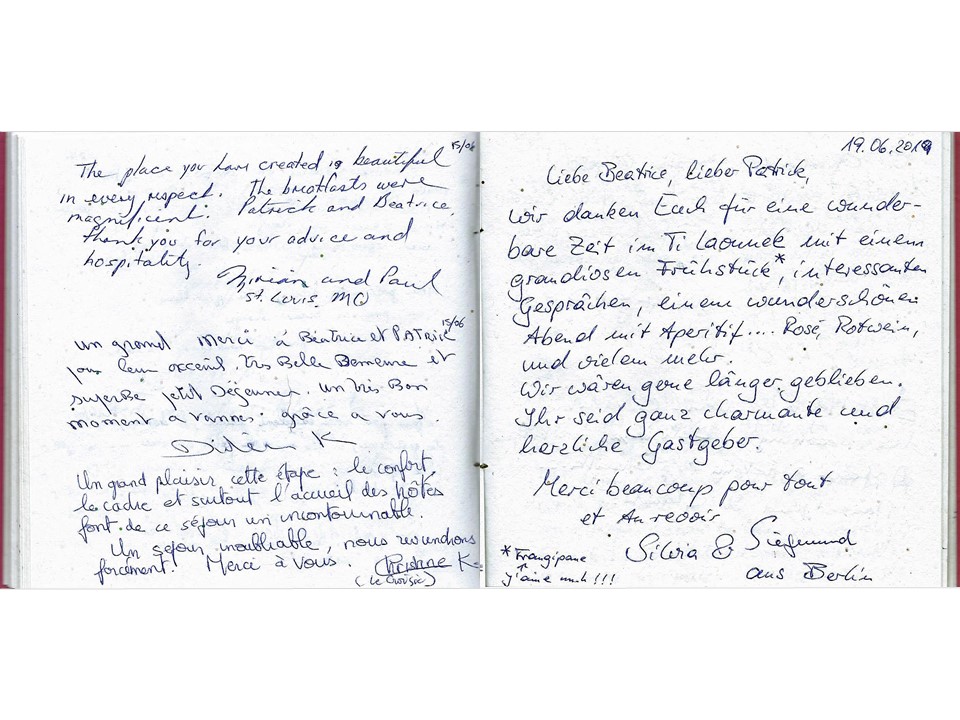 15/06
The place you have created is beautiful
in every respect. The breakfasts were
magnificent. Patrick and Beatrice,
thank you for your advice and
hospitality.
and Paul
St. Louis, MO
15/06
un grand merci à Béatrice et PATRICK
pour leur acceuil. très Belle Demeure et
superbe petit Déjeuner. un très Bon
moment a vannes. grâce a vous.
Didier K
Un grand plaisir, cette étape : le confort,
le cadre et surtout l'accueil des hôtes
font de ce séjour un incontournable.
Un séjour inoubliable, nous reviendrons
forcément. Merci à vous. Christine K
(Le Croisic)
19.06.2019
Liebe Beatrice, Lieber Patrick,
wir danken Euch für eine wunder-
bare Zeit im Ti Laounek mit einem
grandiosen Frühstück*, interessanten
Gesprächen, einem wunderschönen
Abend mit Aperitif.... Rosé, Rotwein,
und vielem mehr.
Wir wären gerne länger geblieben.
Ihr seid ganz charmante und
herzliche Gastgeber.
Merci beaucoup pour tout
et Au revoir
Silvia & Siegmund
aus Berlin
* Frangipane
J'aime !!!